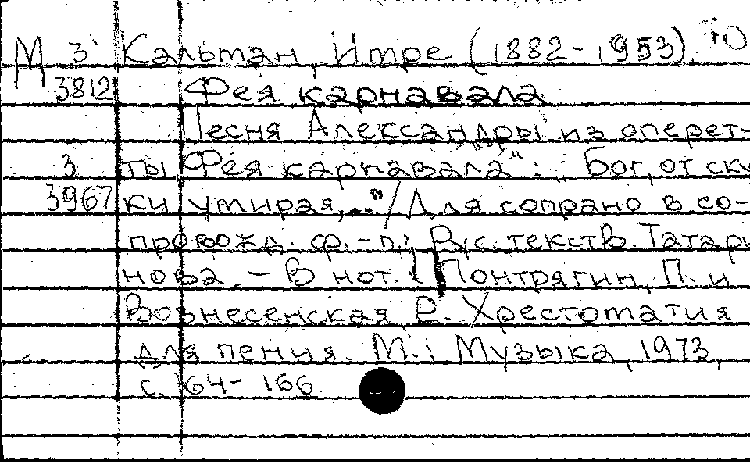 М 3 Кальман, Имре (1882-1953). Ю
3812 Фея карнавала
Песня Александры из оперет-
3 ты "Фея карнавала": Бог, от ску
3967 ки умирая,..." / Для сопрано в со-
провожд. ф.-п.; Рус. текст В. Татари
нова. - В нот.: Понтрягин, П. и
Вознесенская Е. Хрестоматия
для пения. М.: Музыка, 1973,
с. 164-166